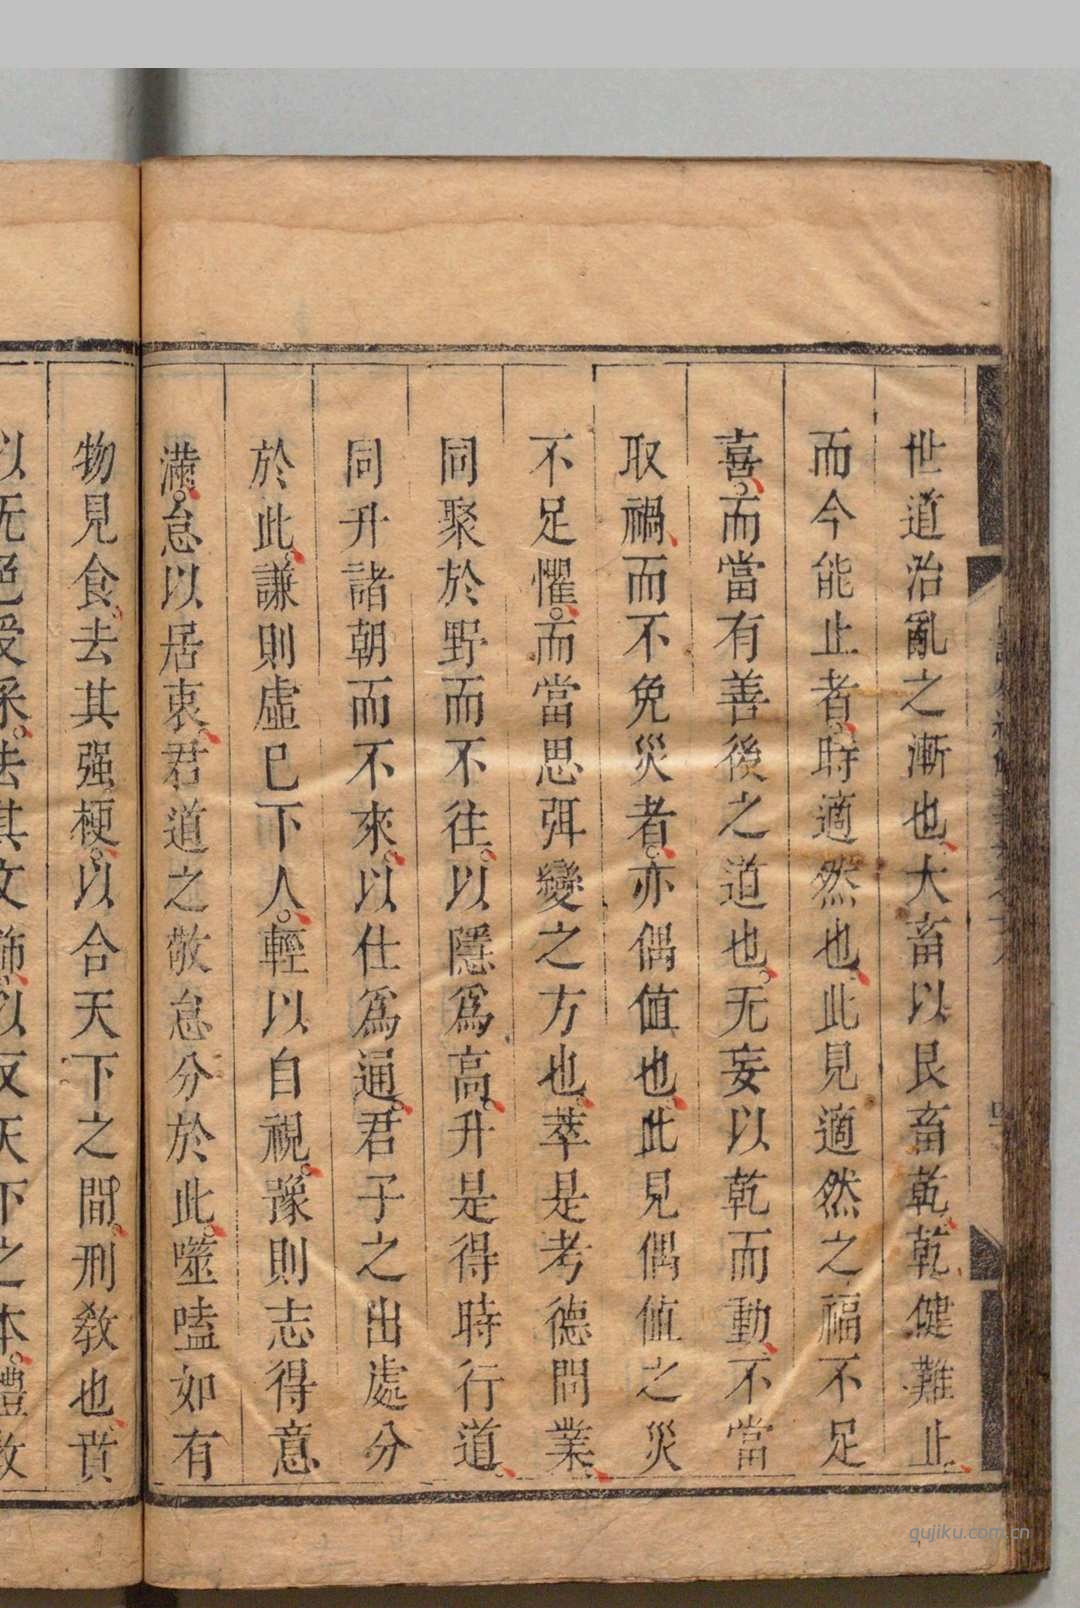 世道治亂之漸也大畜以艮畜乾乾健難止
而今能止者時適然也此見適然之福不足
喜而當有善後之道也无妄以乾而動不當
取禍而不免災者亦偶值也此見偶值之災
不足懼而當思弭變之方也萃是考德問業
同聚於野而不往以隱爲高升是得時行道
同升諸朝而不來以仕爲通君子之出處分
於此謙則虛巳下人輕以自視豫則志得意
滿怠以居衷君道之敬怠分於此噬嗑如有
物見食去其强梗以合天下之間刑敎也賁
以无色受采去其文飾以反天下之本禮敎
qujiku.com.cn